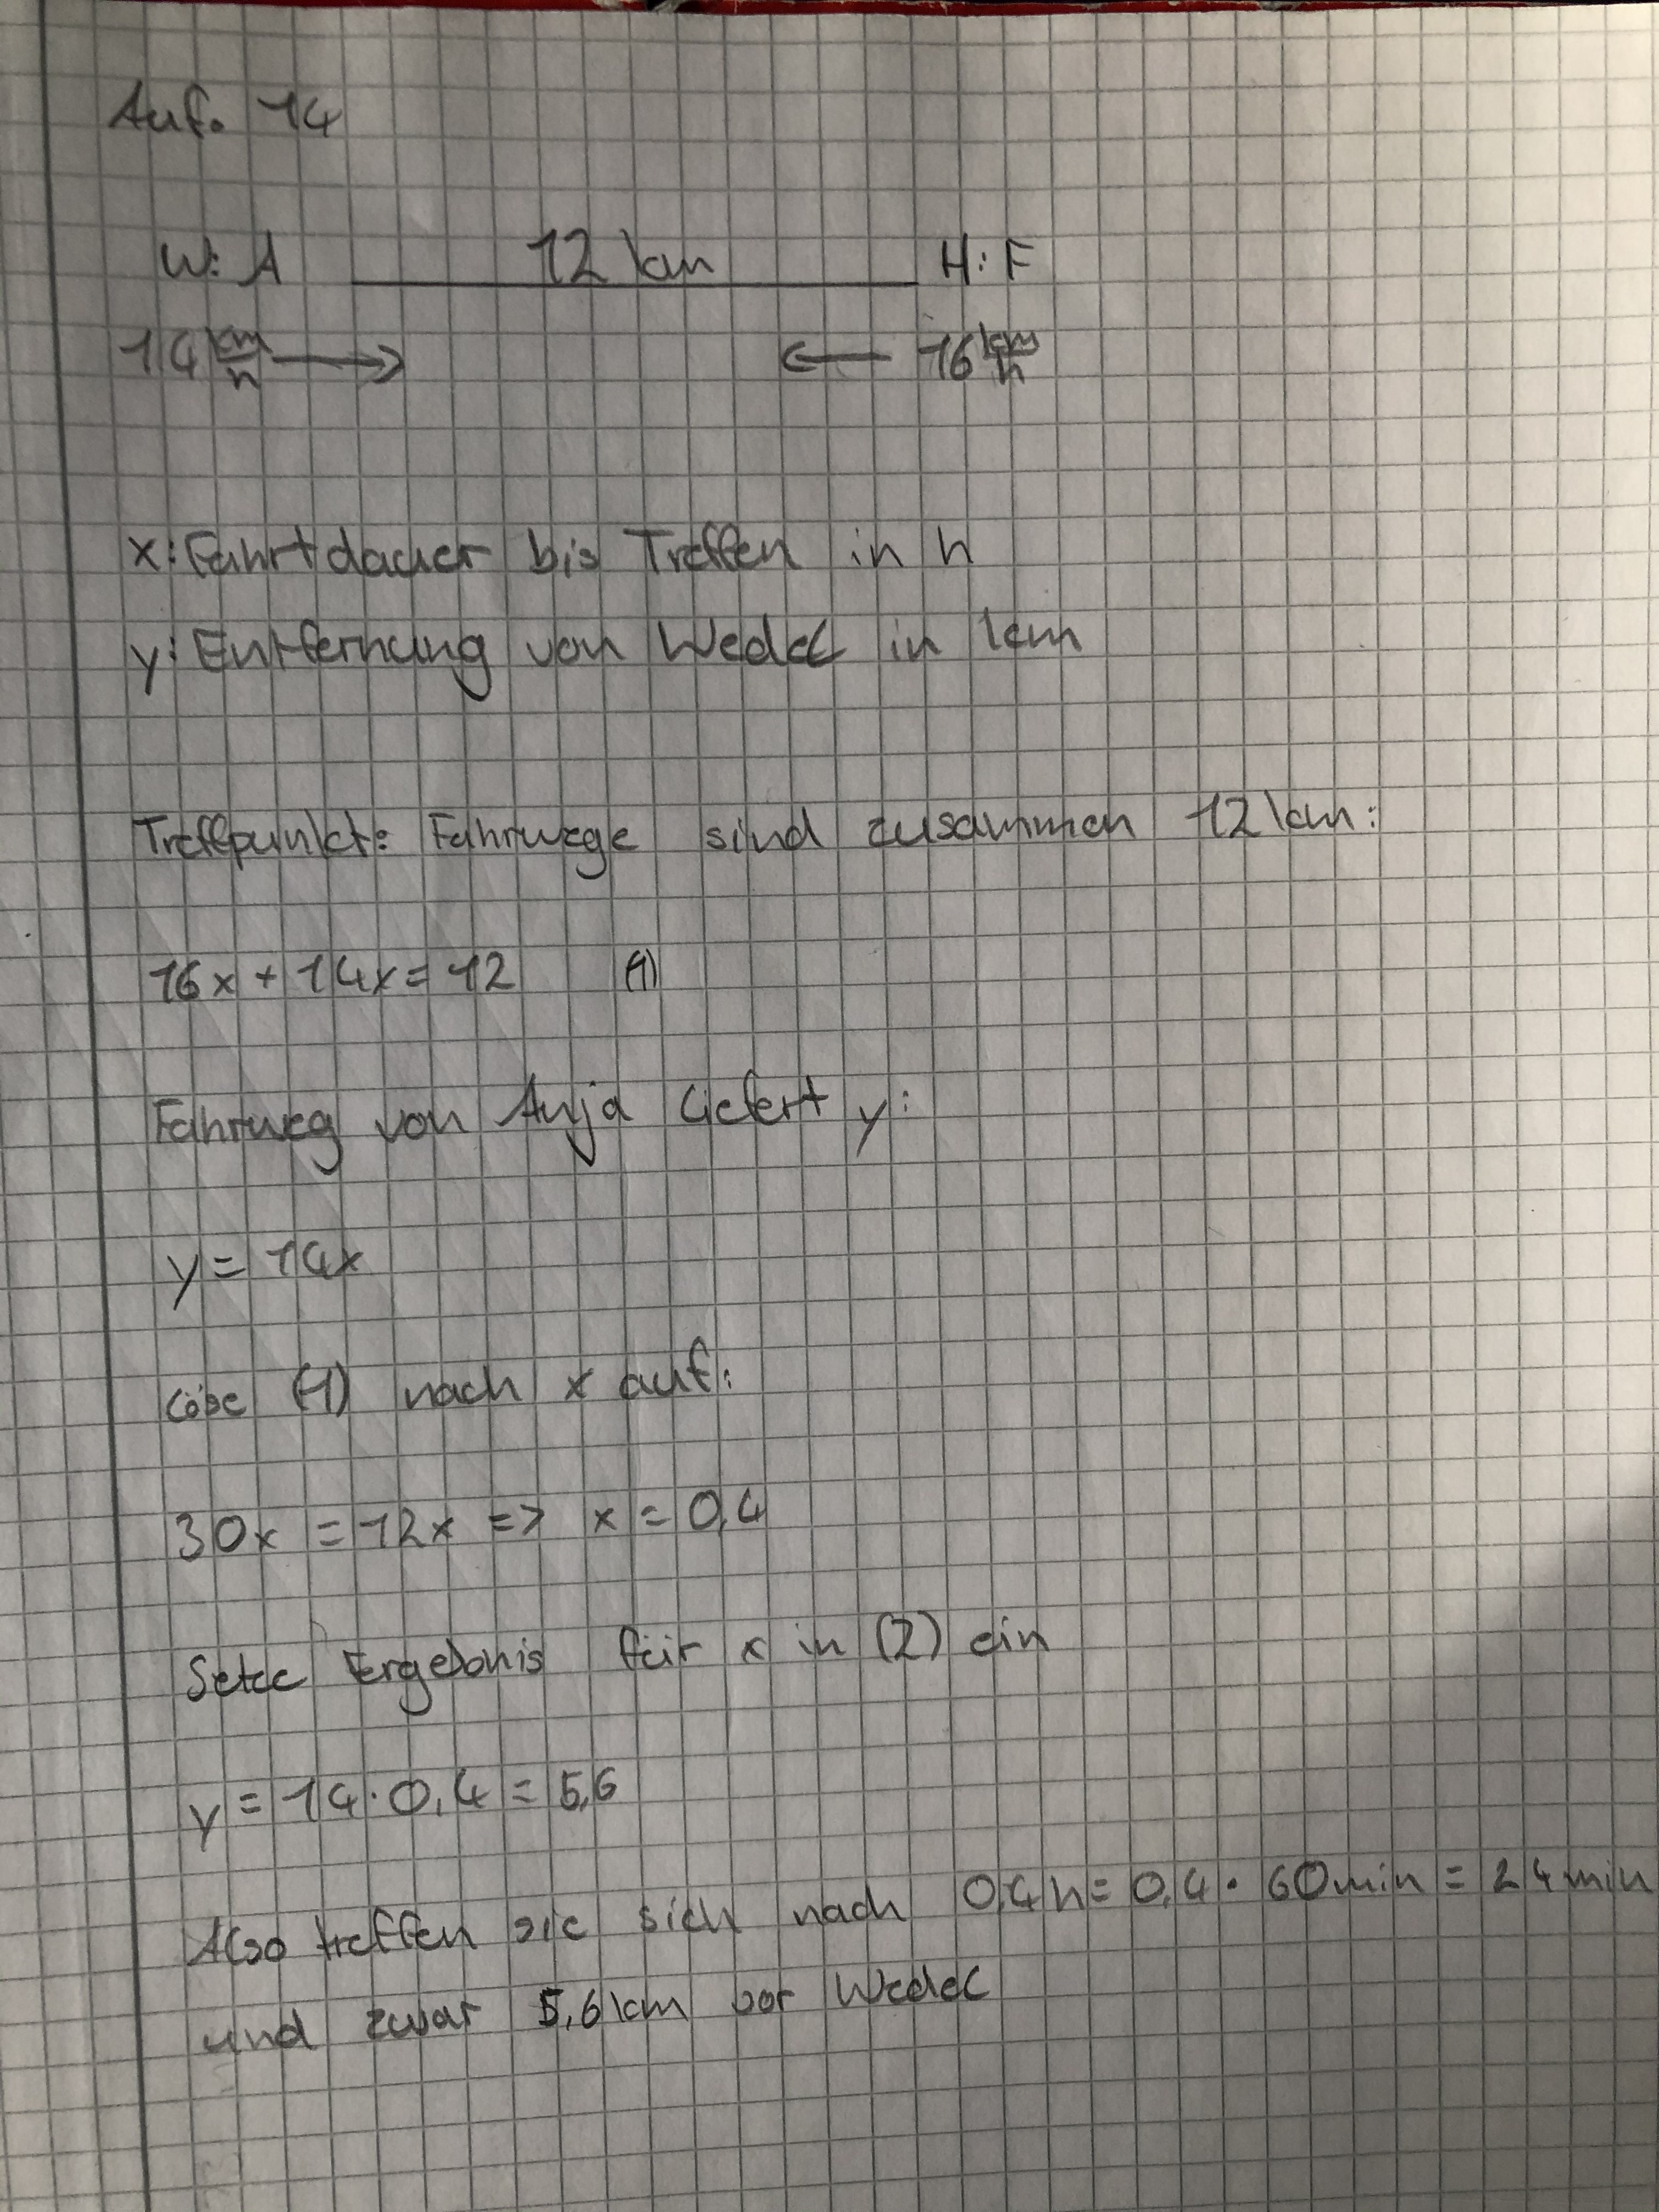 Auf. 14
W: A 12 km H: F
14 km/h → ← 16 km/h
x: Fahrtdauer bis Treffen in h
y: Entfernung von Wedel in km
Treffpunkt: Fahrwege sind zusammen 12 km:
16x + 14x = 12 (1)
Fahrweg von Anja liefert y:
y = 14x
Löse (1) nach x auf:
30x = 12x => x = 0,4
Setze Ergebnis für x in (2) ein
y = 14 · 0,4 = 5,6
Also treffen sie sich nach 0,4 h = 0,4 · 60 min = 24 min
und zwar 5,6 km vor Wedel